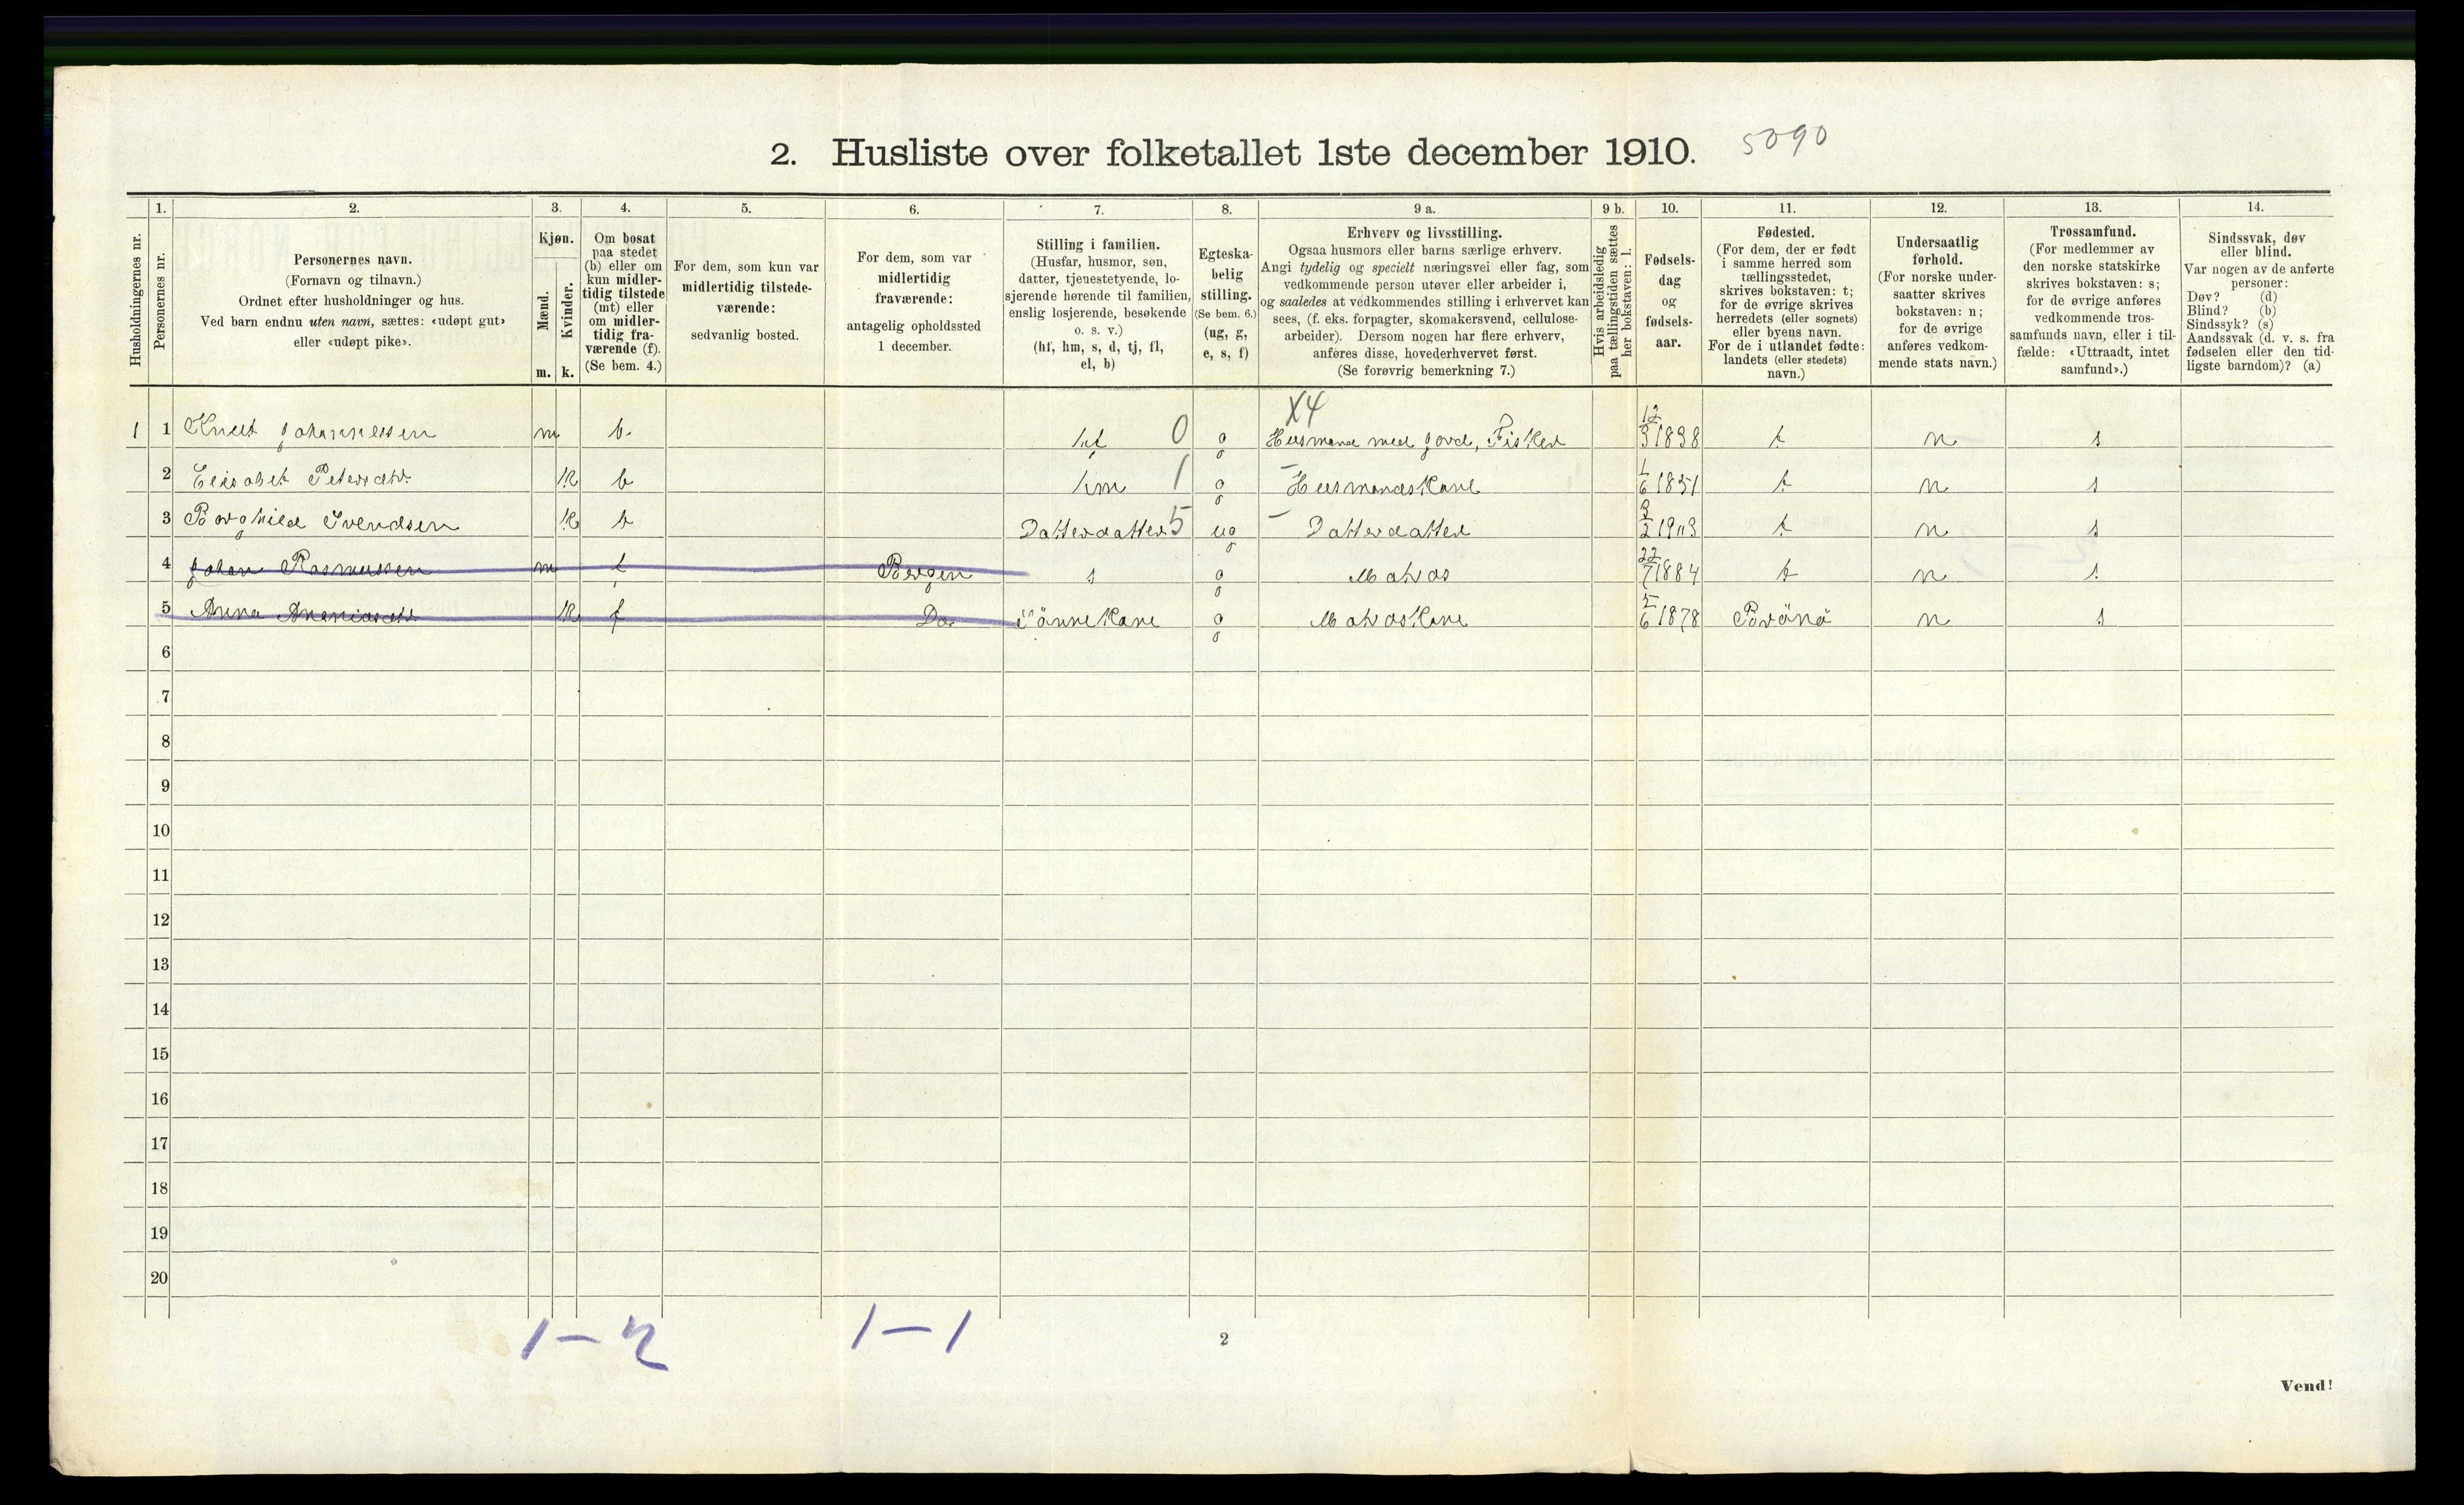 2. Husliste over folketallet 1ste december 1910. 5090
1. 2. 3. 4. 5. 6. 7. 8. 9 a. 9 b. 10. 11. 12. 13. 14.
Husholdningernes nr.
Personernes nr.
Personernes navn.
(Fornavn og tilnavn.)
Ordnet efter husholdninger og hus.
Ved barn endnu uten navn, sættes: «udøpt gut»
eller «udøpt pike».
Kjøn.
Mænd.
Kvinder.
m. k.
Om bosat
paa stedet
(b) eller om
kun midler-
tidig tilstede
(mt) eller
om midler-
tidig fra-
værende (f).
(Se bem. 4.)
For dem, som kun var
midlertidig tilstede-
værende:
sedvanlig bosted.
For dem, som var
midlertidig
fraværende:
antagelig opholdssted
1 december.
Stilling i familien.
(Husfar, husmor, søn,
datter, tjenestetyende, lo-
sjerende hørende til familien,
enslig losjerende, besøkende
o. s. v.)
(hf, hm, s, d, tj, fl,
el, b)
Egteska-
belig
stilling.
(Se bem. 6.)
(ug, g,
e, s, f)
Erhverv og livsstilling.
Ogsaa husmors eller barns særlige erhverv.
Angi tydelig og specielt næringsvei eller fag, som
vedkommende person utøver eller arbeider i,
og saaledes at vedkommendes stilling i erhvervet kan
sees, (f. eks. forpagter, skomakersvend, cellulose-
arbeider). Dersom nogen har flere erhverv,
anføres disse, hovederhvervet først.
(Se forøvrig bemerkning 7.)
Hvis arbeidsledig
paa tællingstiden sættes
her bokstaven: l.
Fødsels-
dag
og
fødsels-
aar.
Fødested.
(For dem, der er født
i samme herred som
tællingsstedet,
skrives bokstaven: t;
for de øvrige skrives
herredets (eller sognets)
eller byens navn.
For de i utlandet fødte:
landets (eller stedets)
navn.)
Undersaatlig
forhold.
(For norske under-
saatter skrives
bokstaven: n;
for de øvrige
anføres vedkom-
mende stats navn.)
Trossamfund.
(For medlemmer av
den norske statskirke
skrives bokstaven: s;
for de øvrige anføres
vedkommende tros-
samfunds navn, eller i til-
fælde: «Uttraadt, intet
samfund».)
Sindssvak, døv
eller blind.
Var nogen av de anførte
personer:
Døv? (d)
Blind? (b)
Sindssyk? (s)
Aandssvak (d. v. s. fra
fødselen eller den tid-
ligste barndom)? (a)
X4
1 1 Knut Johannessen m b hf 0 g Husmand med jord, Fisker 12/3 1838 t n s
2 Elisabet Petersdtr. k b hm 1 g Husmandskone 1/6 1851 t n s
3 Borghild Svendsen k b Datterdatter 5 ug Datterdatter 3/2 1903 t n s
4 Johan Rasmussen m f Bergen s g Matros 22/7 1884 t n s
5 Anna Ananiasdtr. k f Do. Sönnekone g Matroskone 5/6 1878 Brönö n s
6
7
8
9
10
11
12
13
14
15
16
17
18
19
20
1-2 1-1
2
Vend!